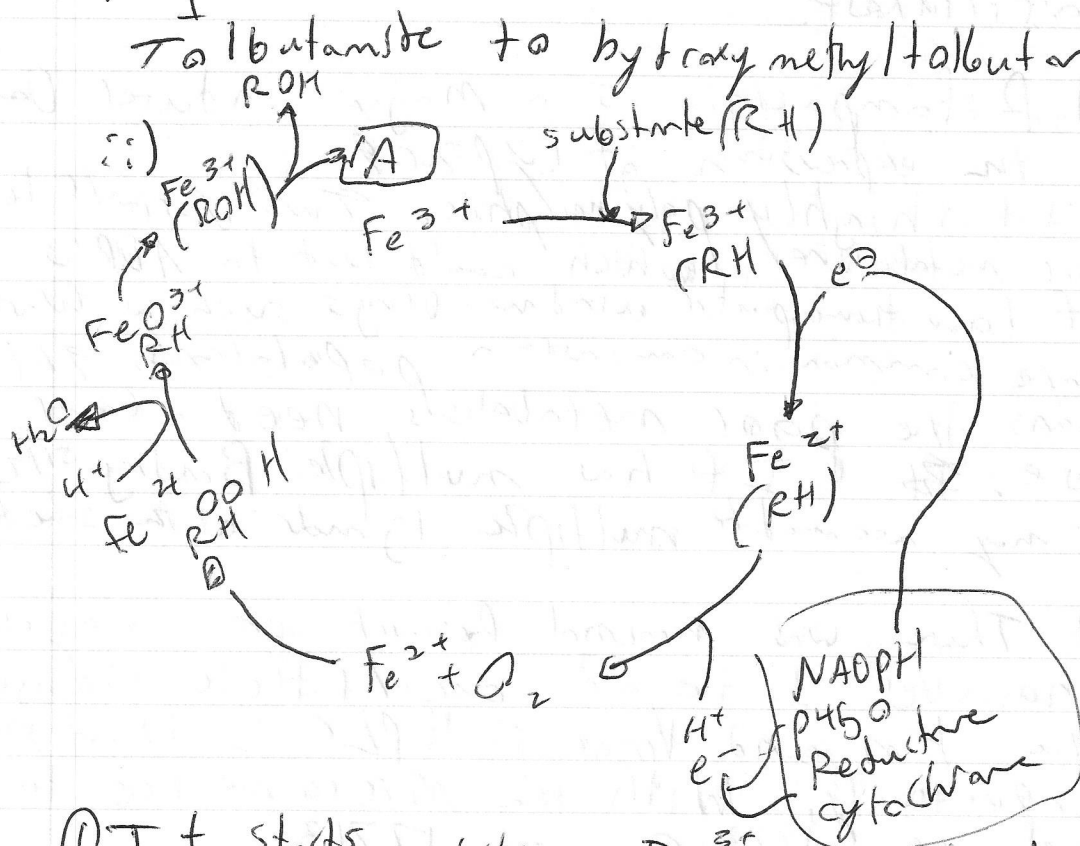 Tolbutamide to hydroxymethyltolbuta
ROH
substrate (RH)
ii)
A
Fe3+
(ROH)
Fe3+
Fe3+
(RH
e⊖
FeO3+
RH
H2O
H+
Fe2+
(RH)
Fe OOH
RH
Fe2+ + O2
H+
e-
NADPH
P450
Reductase
cytochrome
① It starts
3+